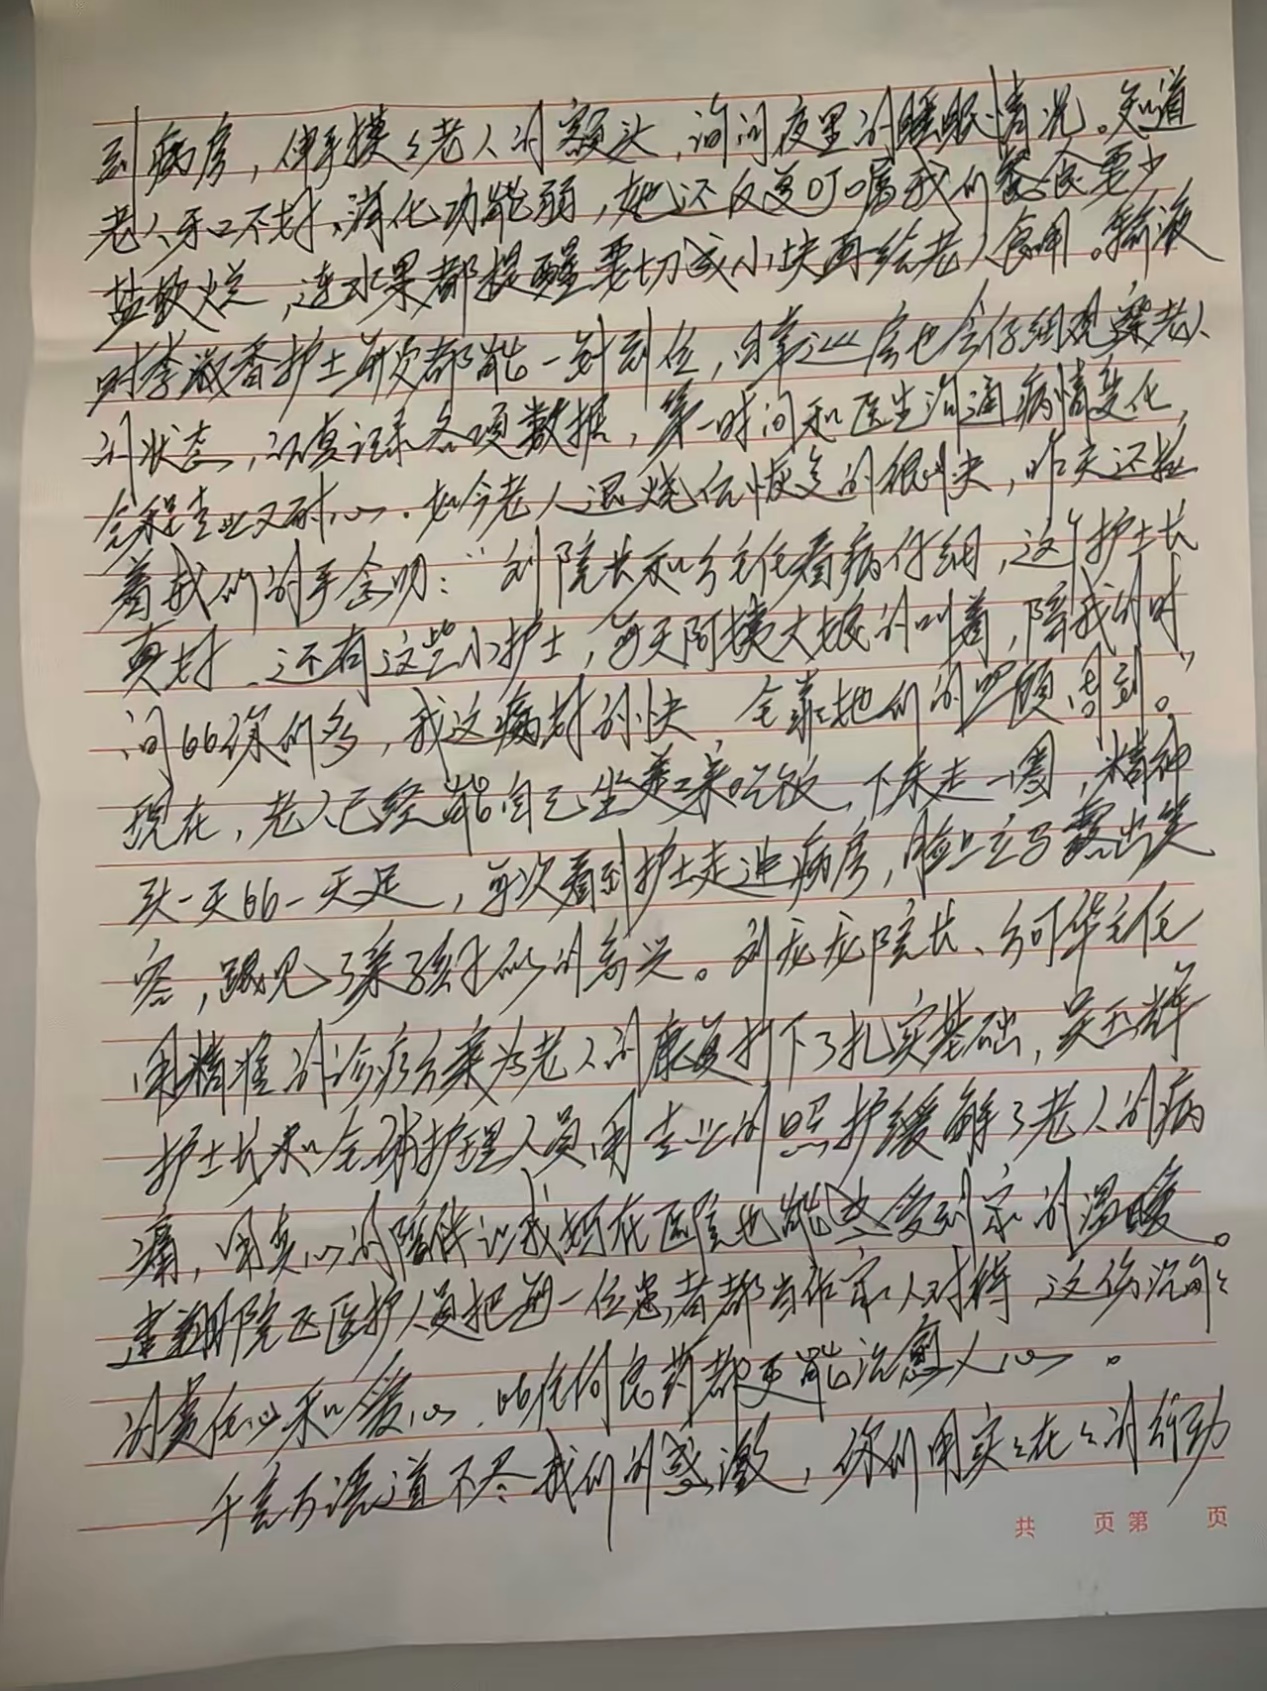 到病房，伸手摸々老人的额头，询问夜里的睡眠情况。知道
老人牙口不好、消化功能弱，她还反复叮嘱我们餐食要少
盐软烂，连水果都提醒要切成小块再给老人食用。输液
时李淑香护士每次都能一针到位，日常巡房也会仔细观察老人
的状态，认真记录各项数据，第一时间和医生沟通病情变化，
全程专业又耐心。如今老人退烧后恢复的很快，昨天还拉
着我们的手念叨：“刘院长和方主任看病仔细，这个护士长
真好、还有这些小护士，每天阿姨大娘的叫着，陪我的时
间比你们多，我这病好的快，全靠她们的照顾周到。”
现在，老人已经能自己坐着来吃饭，下床走一圈，精神
头一天比一天足，每次看到护士走进病房，脸上立马露出笑
容，跟见了亲孩子似的高兴。刘龙龙院长、方何华主任
用精准的诊疗方案为老人的康复打下了扎实基础，吴玉辉
护士长和全体护理人员用专业的照护缓解了老人的病
痛，用真心的陪伴让我妈在医院也能感受到家的温暖。
医护人员把每一位患者都当作家人对待，这份沉甸々
的责任心和爱心，比任何良药都更能治愈人心。
千言万语道不尽我们的感激，你们用实々在々的行动
共 页 第 页